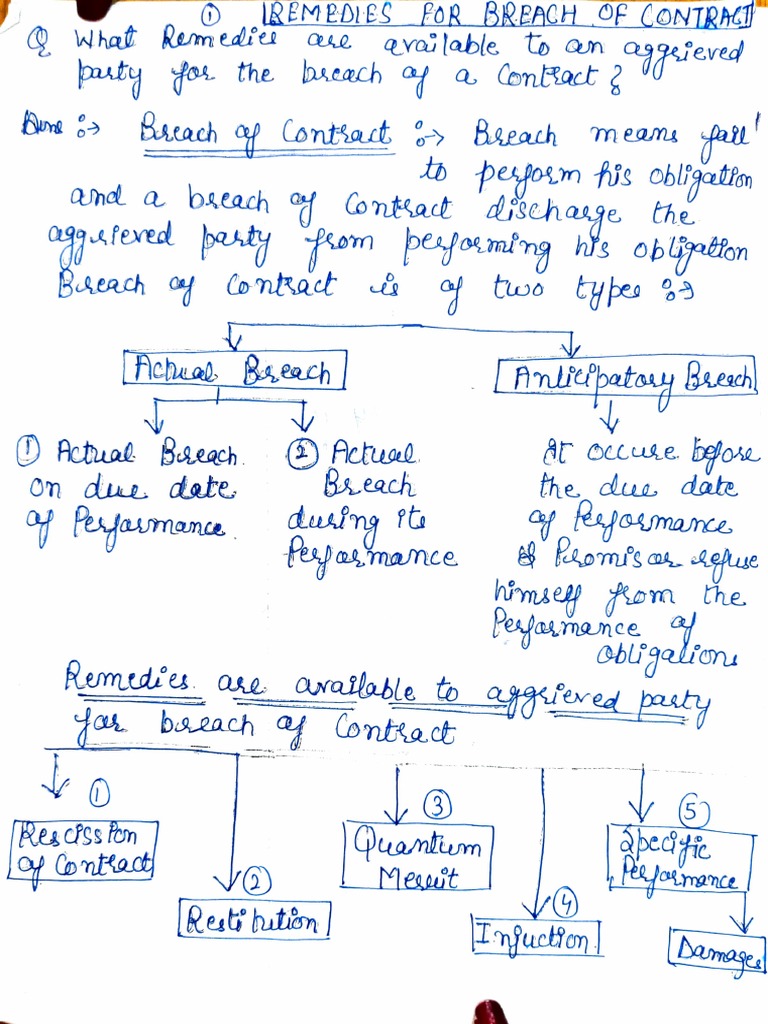 ① REMEDIES FOR BREACH OF CONTRACT
Q What Remedies are available to an aggrieved
party for the breach of a Contract?
Breach of Contract :→ Breach means fail
to perform his obligation
and a breach of Contract discharge the
aggrieved party from performing his obligation
Breach of Contract is of two types :→
Actual Breach
Anticipatory Breach
① Actual Breach
on due date
of Performance
② Actual
Breach
during its
Performance
It occure before
the due date
of Performance
& Promisor refuse
himself from the
Performance of
obligations
Remedies are available to aggrieved party
for breach of Contract
①
Rescission
of Contract
②
Restitution
③
Quantum
Meruit
④
Injuction
⑤
Specific
Performance
Damages